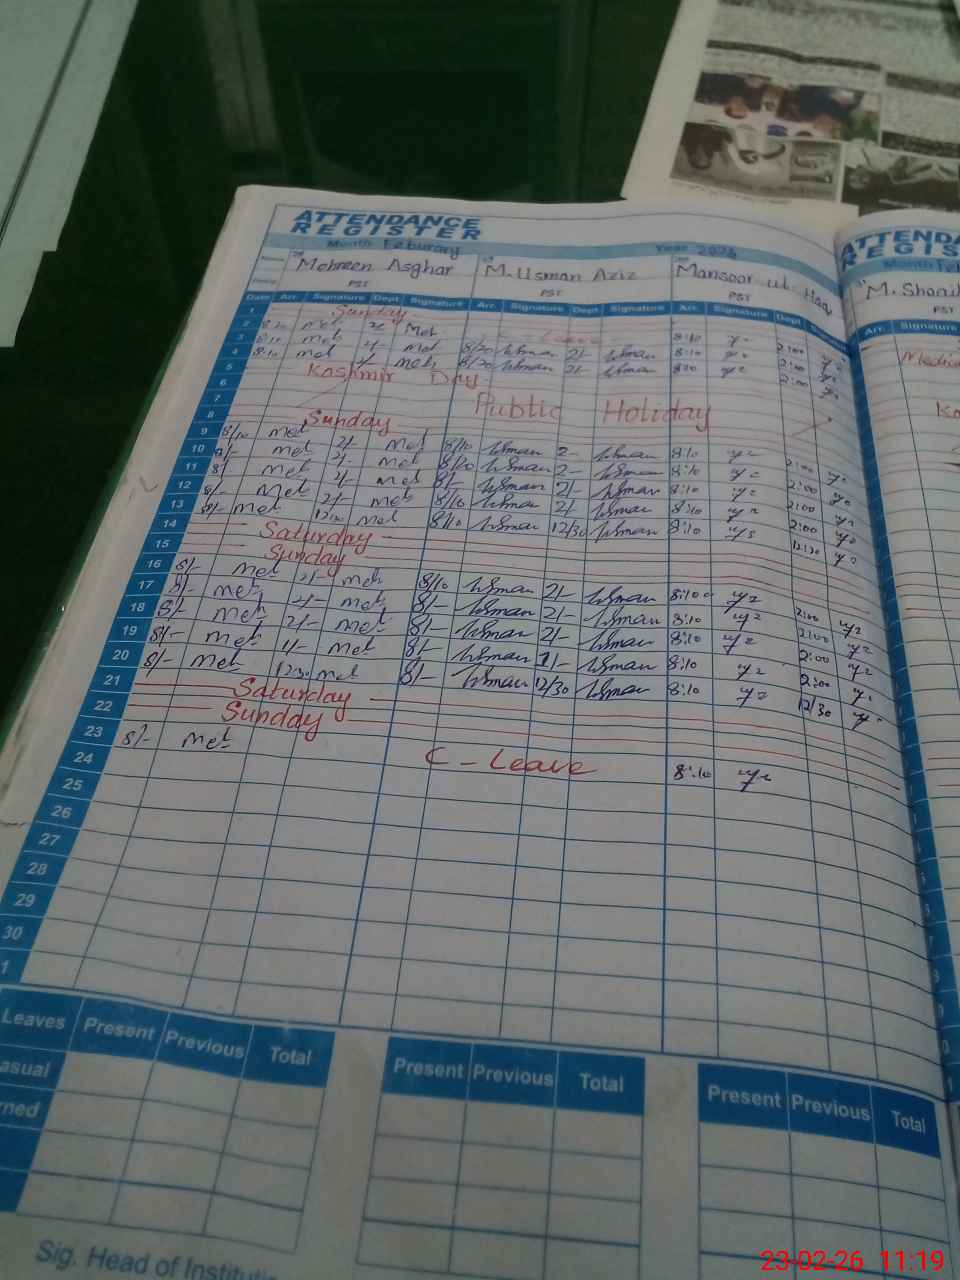 ATTENDANCE
REGISTER
Month Feburary Year 2026
Mehreen Asghar M. Usman Aziz Mansoor ul Haq
PST PST PST
Date Arr. Signature Dept. Signature Arr. Signature Dept Signature Arr. Signature Dept
1 Sunday
2 8:20 Meh Meh Leave 8:10 2:00
3 8:10 Meh 2/- Meh 8/20 Usman 2/- Usman 8:10 2:00
4 8:10 Meh 2/- Meh 8/20 Usman 2/- Usman 8:10 2:00
5 Kashmir Day
6 Public Holiday
7
8 Sunday
9 8/10 Meh 2/- Meh 8/10 Usman 2- Usman 8:10 2:00
10 8/- Meh 2/- Meh 8/10 Usman 2- Usman 8:10 2:00
11 8/- Meh 2/- Meh 8/- Usman 2/- Usman 8:10 2:00
12 8/- Meh 2/- Meh 8/10 Usman 2/- Usman 8:10 2:00
13 8/- Meh 12:30 Meh 8/10 Usman 12/30 Usman 8:10 12:30
14 Saturday
15 Sunday
16 8/- Meh 2/- Meh 8/10 Usman 2/- Usman 8:10 2:00
17 8/- Meh 2/- Meh 8/- Usman 2/- Usman 8:10 2:00
18 8/- Meh 2/- Meh 8/- Usman 2/- Usman 8:10 2:00
19 8/- Meh Meh 8/- Usman Usman 8:10 2:00
20 8/- Meh 12:30 Meh 8/- Usman 12/30 Usman 8:10 12/30
21 Saturday
22 Sunday
23 8/- Meh C-Leave 8:10
24
25
26
27
28
29
30
1
Leaves Present Previous Total Present Previous Total Present Previous Total
asual
rned
Sig. Head of Instituti
ATTENDA
REGIS
Month Feb
M. Shoai
PST
Arr. Signature
Medic
Ka
23-02-26 11:19